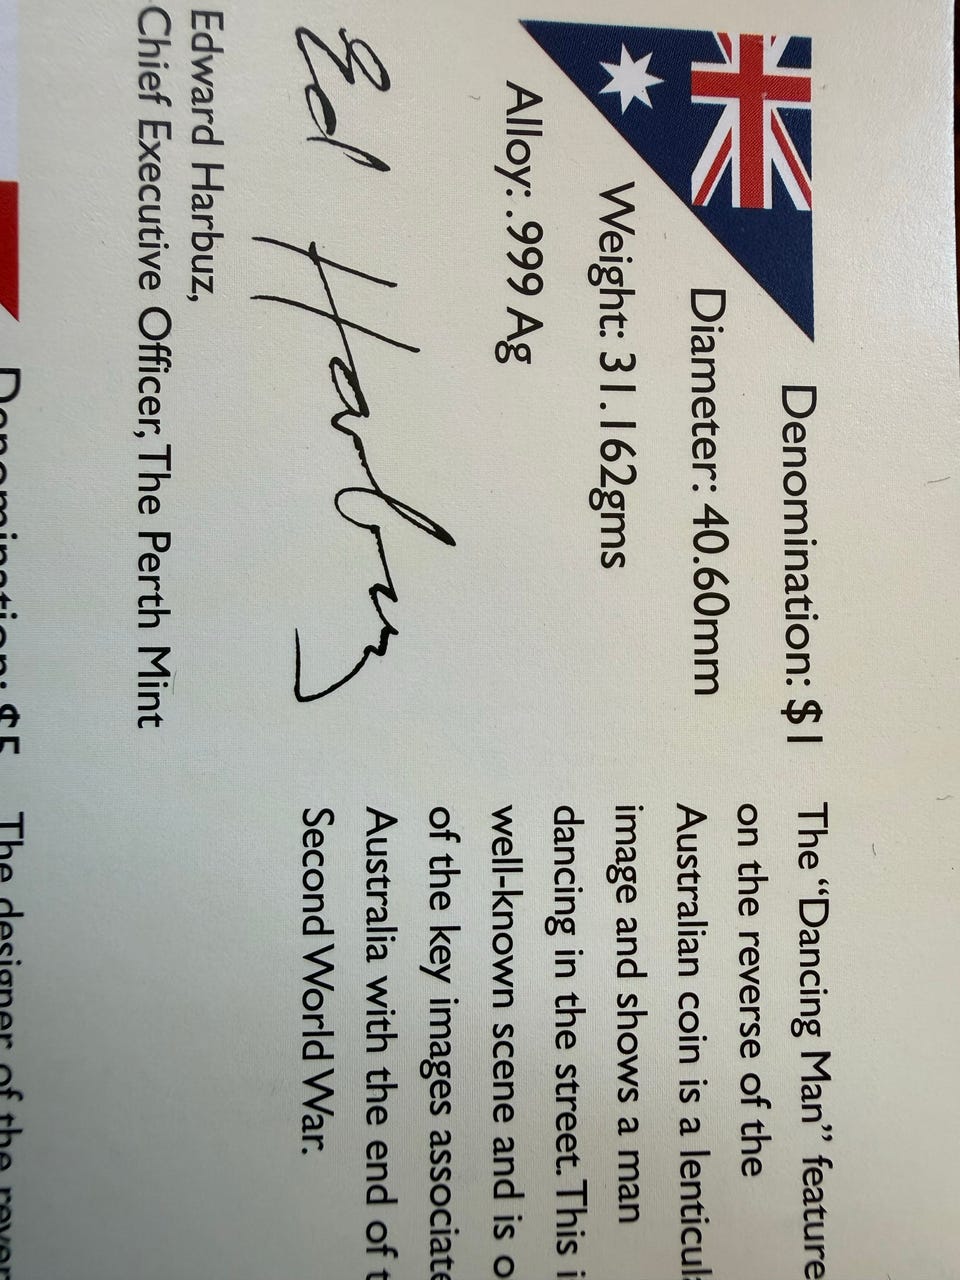 Denomination: $1
Diameter: 40.60mm
Weight: 31.162gms
Alloy: .999 Ag
Ed Harbuz
Edward Harbuz,
Chief Executive Officer, The Perth Mint
The “Dancing Man” feature
on the reverse of the
Australian coin is a
image and shows a man
dancing in the street. This
well-known scene and is
of the key images
Australia with the end of
Second World War.
Denomination: $5
The designer of the